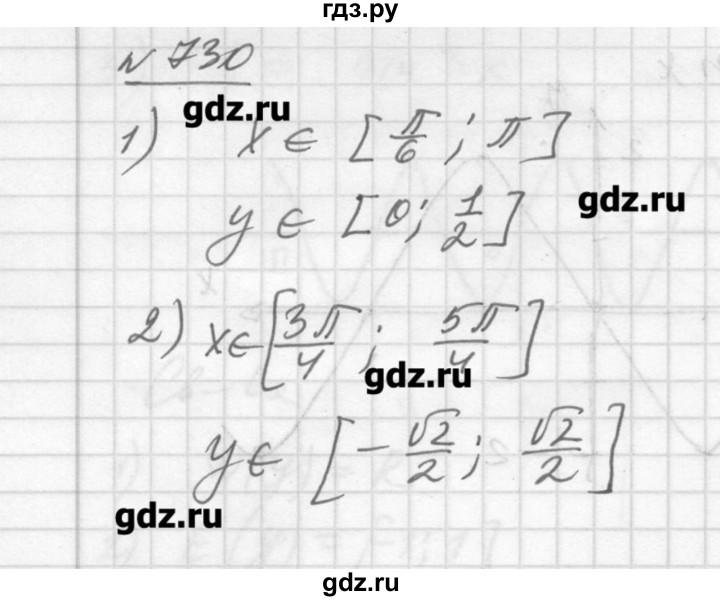 гдз.ру
№ 730
gdz.ru
1) x ∈ [π/6 ; π]
gdz.ru
y ∈ [0; 1/2]
2) x ∈ [3π/4 ; 5π/4]
gdz.ru
y ∈ [-√2/2 ; √2/2]
gdz.ru
gdz.ru